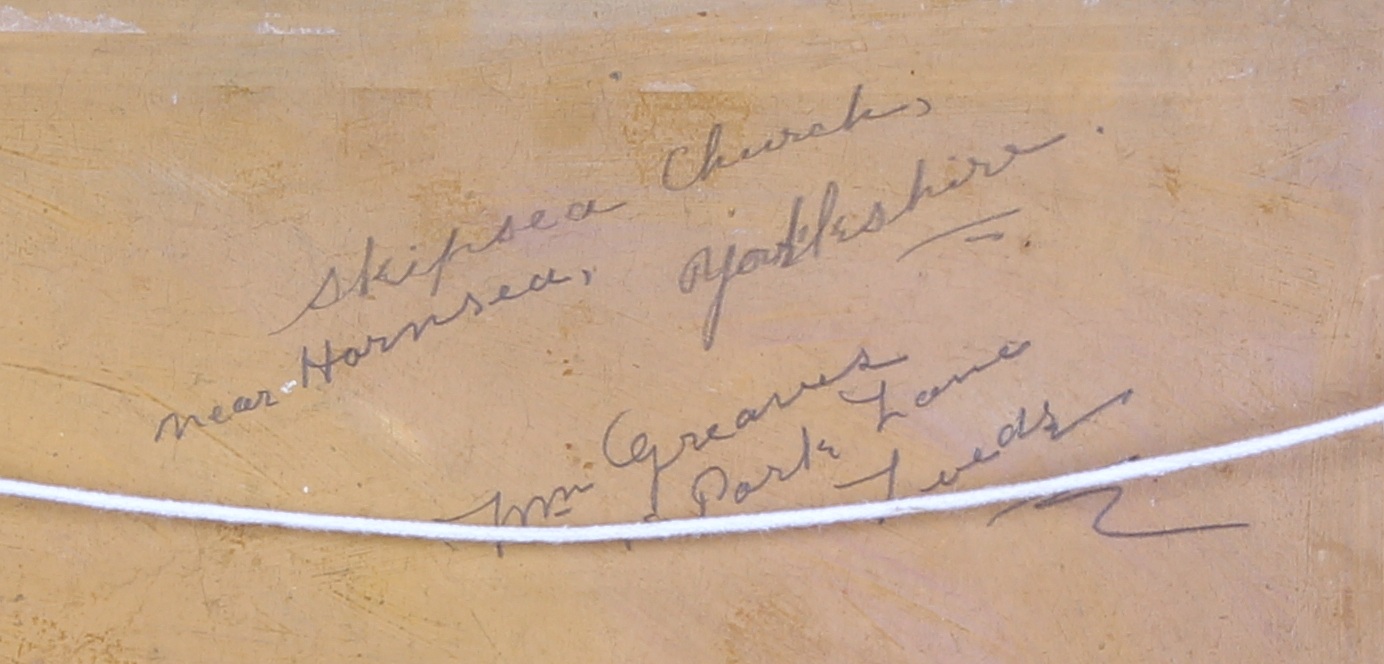 Skipsea Church,
near Hornsea, Yorkshire.
Wm Greaves
Park Lane
Leeds